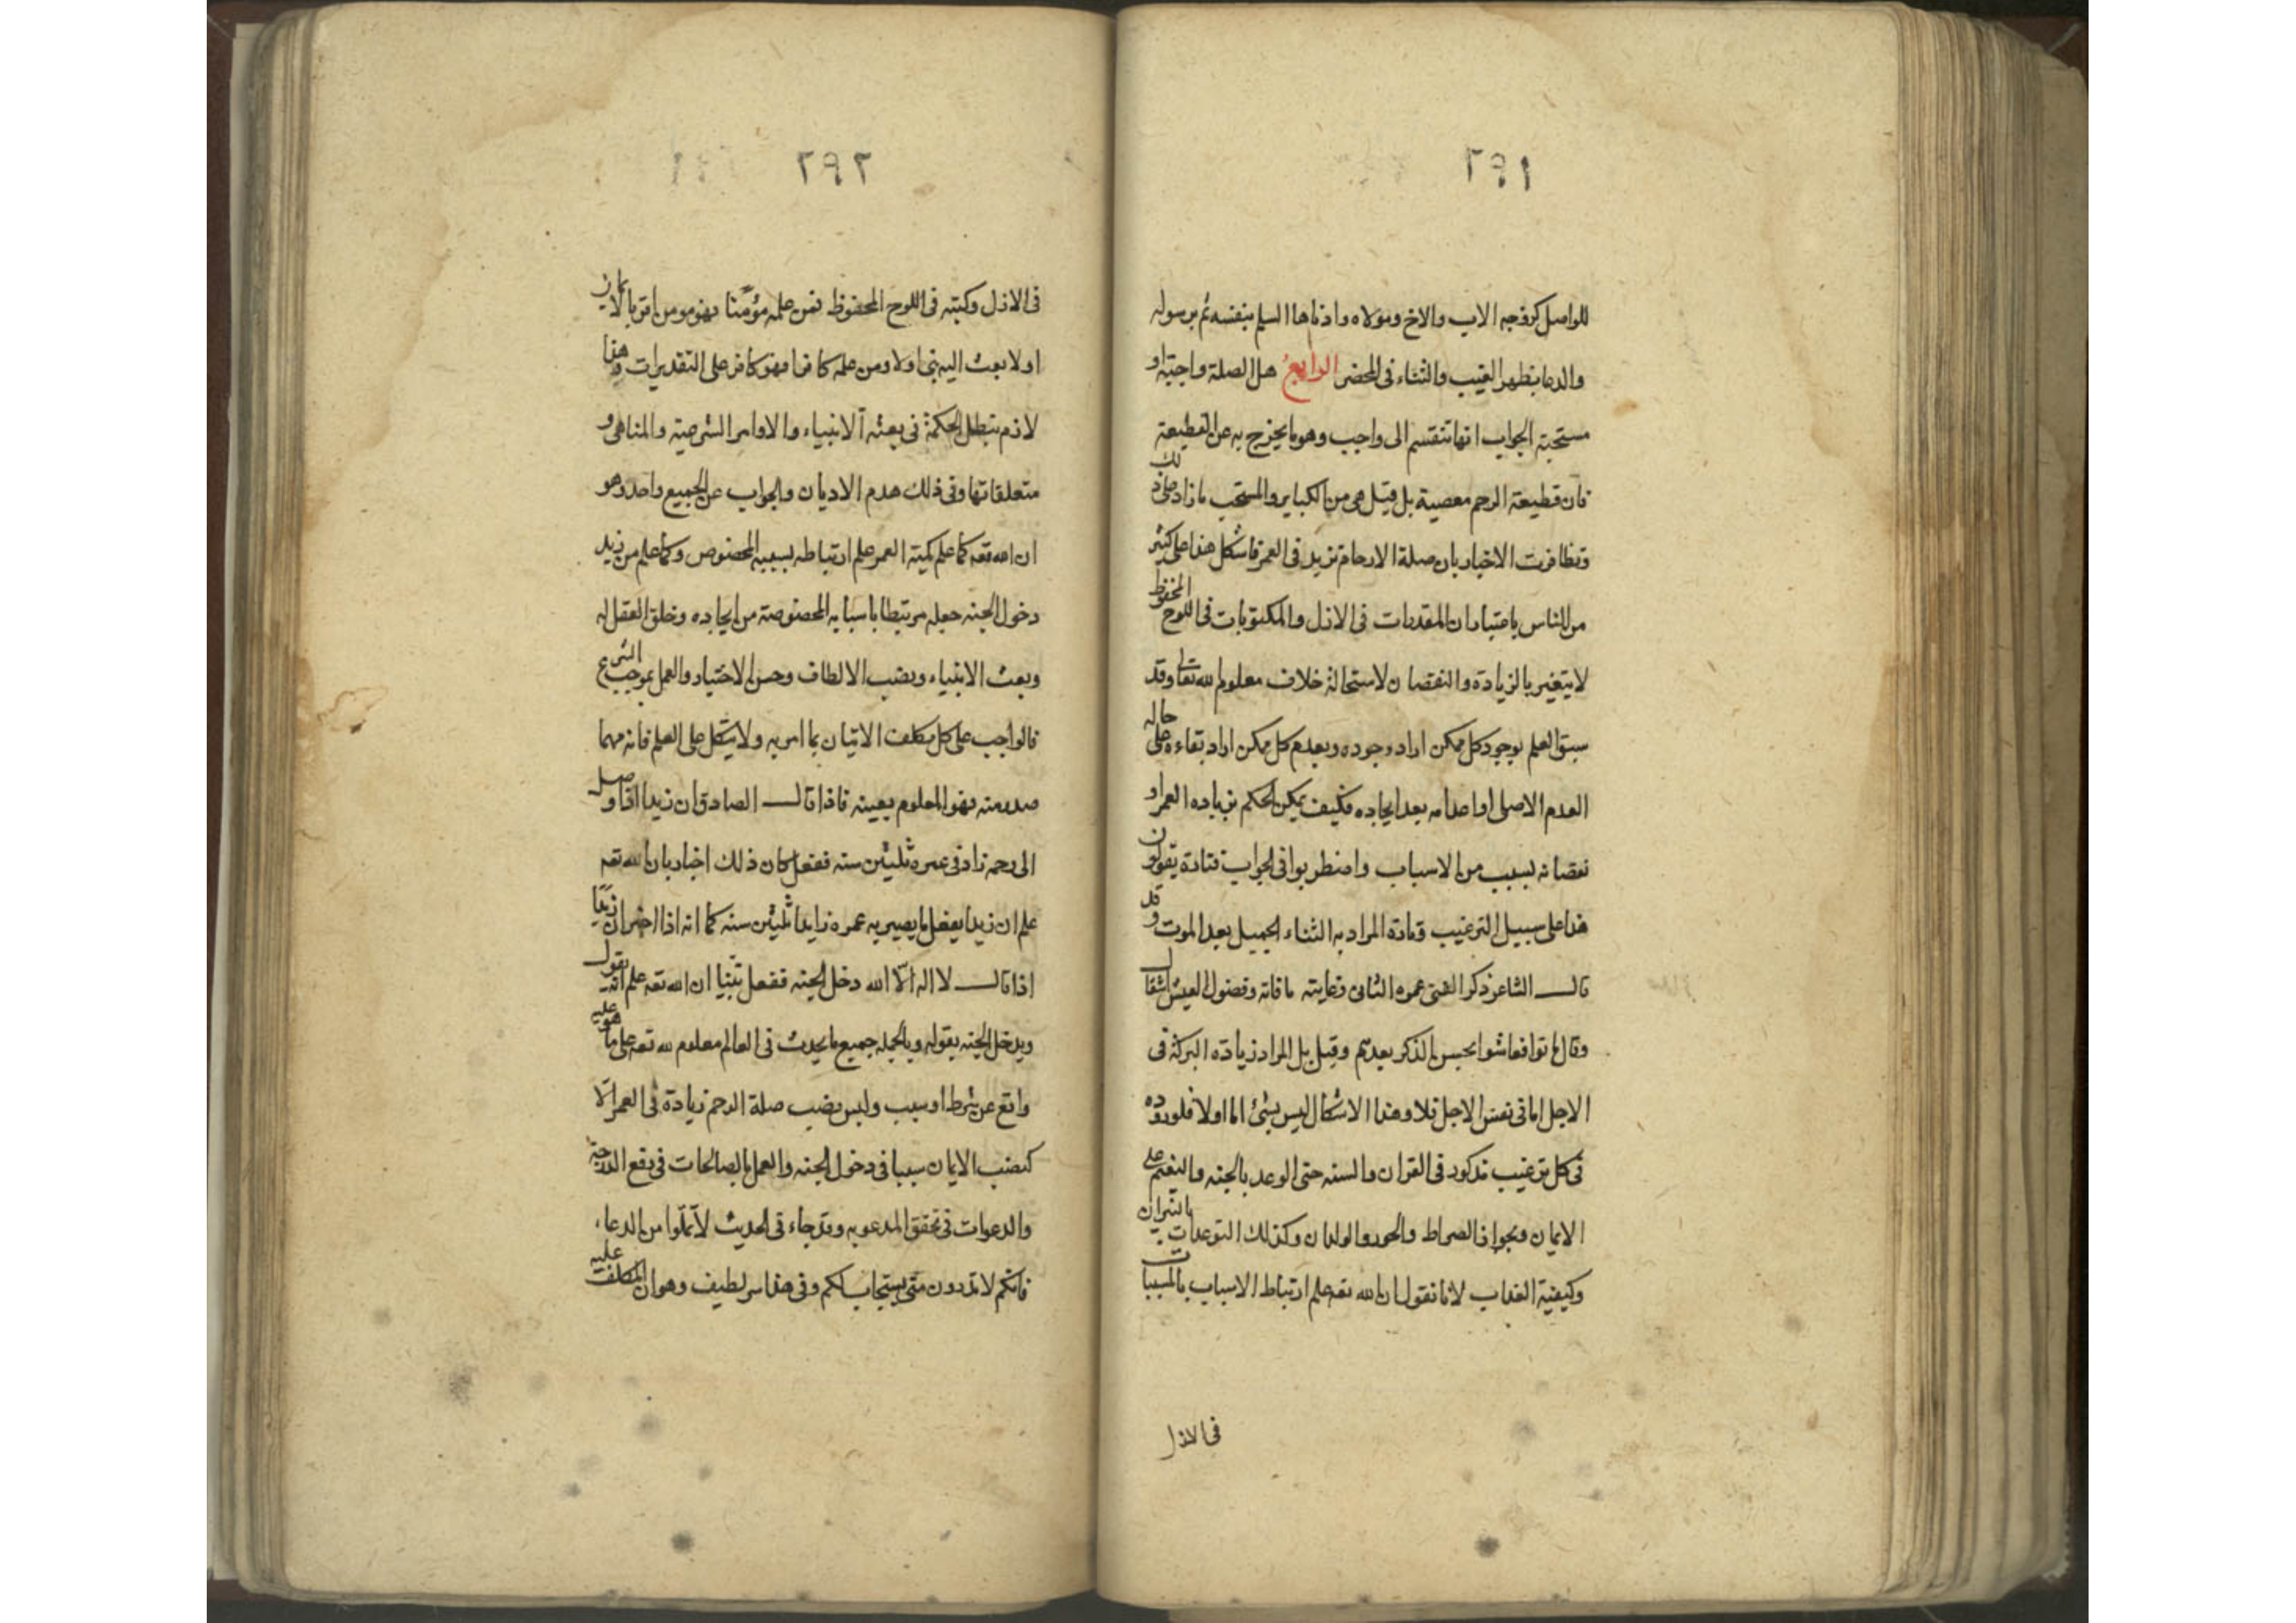 ٢٩١
للواصل كزوجه الاب والاخ ومولاه واذناها السلم بنفسه ثم برسوله
والدعا بظهر الغيب والثناء فى المحضر الرابع هل الصلة واجبة او
مستحبة الجواب انها تنقسم الى واجب وهو ما يخرج به عن القطيعة
فان قطيعة الرحم معصية بل قيل هى من الكباير والمستحب ما زاد على ذلك
وتظافرت الاخبار بان صلة الارحام تزيد فى العمر فاشكل هذا على كثير
من الناس باعتبار ان المقدرات فى الازل والمكتوبات فى اللوح المحفوظ
لا يتغير بالزيادة والنقصان لاستحالة خلاف معلوم الله تعالى وقد
سبق العلم بوجود كل ممكن اراد وجوده وبعدم كل ممكن اراد بقاءه على حاله
العدم الاصلى او اعدامه بعد ايجاده فكيف يمكن الحكم بزياده العمر او
نقصانه بسبب من الاسباب واضطربوا فى الجواب فتادة يقولون
هذا على سبيل الترغيب وتادة المراد به الثناء الجميل بعد الموت وقد
قال الشاعر ذكر الفتى عمره الثانى وغايته ما فاته وفضول العيش اشقال
وقال ماتوا فعاشوا بحسن الذكر بعدهم وقيل بل المراد زيادة البركة فى
الاجل اما فى نفس الاجل فلا وهذا الاشكال ليس بشئ اما اولا فلوروده
فى كل ترغيب مذكور فى القران والسنه حتى الوعد بالجنه والنعيم على
الايمان وبجواز الصراط والحور والولدان وكذلك التوعدات بالنيران
وكيفية العذاب لانا نقول ان الله تعه علم ارتباط الاسباب بالمسببات
فى الازل
٢٩٢
فى الازل وكتبه فى اللوح المحفوظ فمن علمه مؤمنا فهو مومن اقر بالايمان
اولا بعث اليه نبى اولا ومن علمه كافرا فهو كافر على التقديرات وهذا
لازم يبطل الحكمة فى بعثه الانبياء والاوامر الشرعية والمناهى و
متعلقاتها وفى ذلك هدم الاديان والجواب عن الجميع واحد وهو
ان الله تعه كما علم كمية العمر علم ارتباطه بسببه المخصوص وكما علم من زيد
دخول الجنه جعله مرتبطا باسبابه المخصوصة من ايجاده وخلق العقل له
وبعث الانبياء ونصب الالطاف وحسن الاختيار والعمل بموجب الشرع
فالواجب على كل مكلف الاتيان بما امر به ولا يتكل على العلم فانه مهما
صدر منه فهو المعلوم بعينه فاذا قال الصادق ان زيدا اذا وصل
الى رحمه زاد فى عمره ثلثين سنه ففعل كان ذلك اخبار بان الله تعه
علم ان زيدا يفعل ما يصير به عمره زايدا ثلثين سنه كما انه اذا اخبر ان زيدا
اذا قال لا اله الا الله دخل الجنه ففعل تبينا ان الله تعه علم انه يقول
ويدخل الجنه بقوله وبالجمله جميع ما يحدث فى العالم معلوم لله تعه على ما هو عليه
واقع عن شرط او سبب وليس نصب صلة الرحم زيادة فى العمر الا
كنصب الايمان سببا فى دخول الجنه والعمل بالصالحات فى رفع الدرجة
والدعوات فى تحقق المدعو به وقد جاء فى الحديث لا تملوا من الدعاء
فانكم لا تدرون متى يستجاب لكم وفى هذا سر لطيف وهو ان المكلف عليه